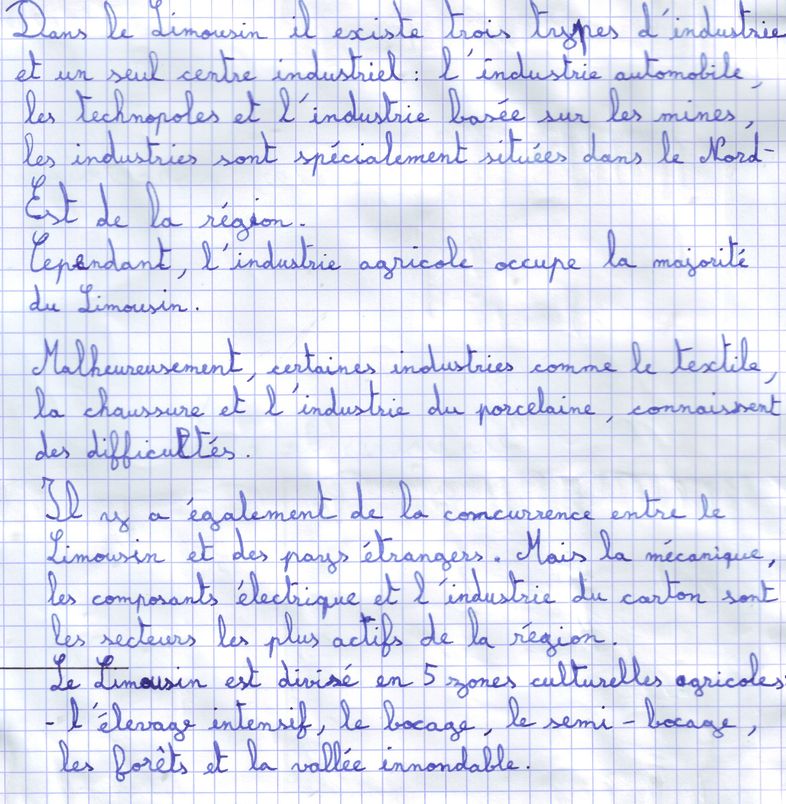 Dans le Limousin il existe trois types d'industrie
et un seul centre industriel : l'industrie automobile,
les technopoles et l'industrie basée sur les mines,
les industries sont spécialement situées dans le Nord-
Est de la région.
Cependant, l'industrie agricole occupe la majorité
du Limousin.
Malheureusement, certaines industries comme le textile,
la chaussure et l'industrie du porcelaine, connaissent
des difficultés.
Il y a également de la concurrence entre le
Limousin et des pays étrangers. Mais la mécanique,
les composants électrique et l'industrie du carton sont
les secteurs les plus actifs de la région.
Le Limousin est divisé en 5 zones culturelles agricoles:
- l'élevage intensif, le bocage, le semi-bocage,
les forêts et la vallée innondable.